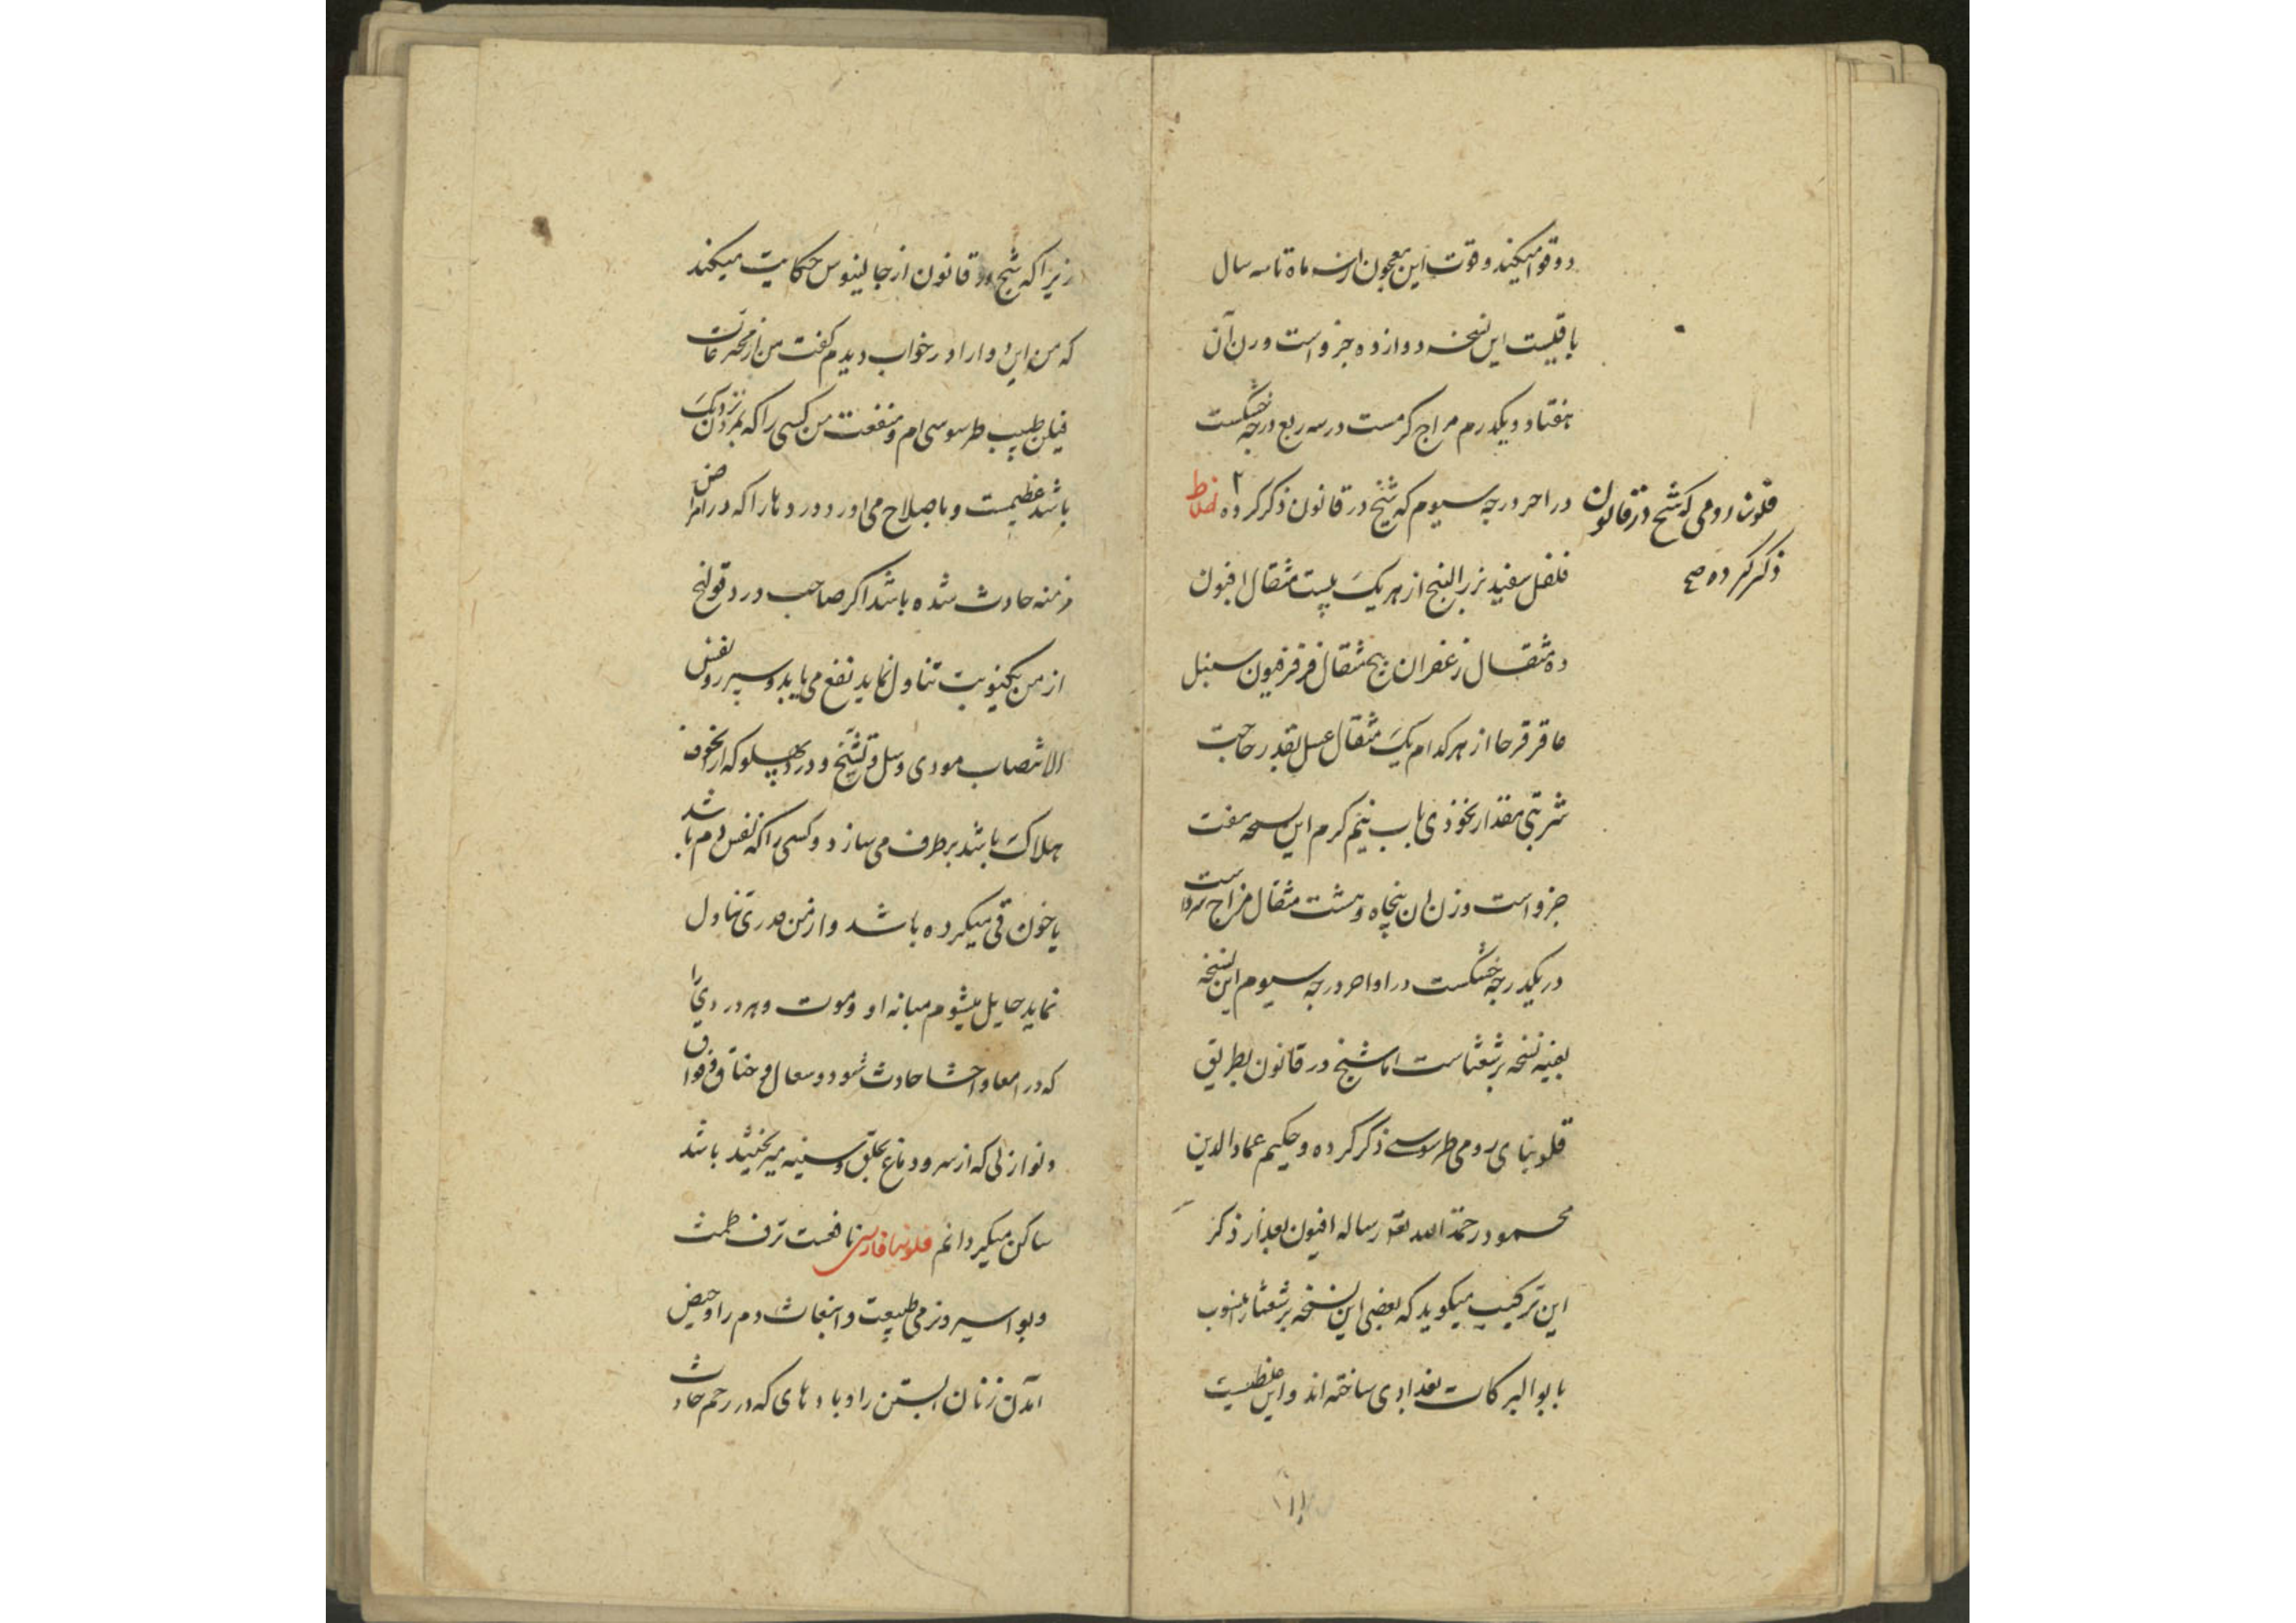 دوقوا میکند و قوت این معجون از سه ماه تا سه سال
باقیست این نسخه دوازده جزو است وزن آن
هفتاد و یکدرم مزاج گرمست در سه ربع درجه خشکست
در اخر درجه سیوم که شیخ در قانون ذکر کرده ۲ اخلاط
قلونیا رومی که شیخ در قانون
ذکر کرده صح
فلفل سفید بزر البنج از هر یک بیست مثقال افیون
ده مثقال زعفران پنج مثقال فرفیون سنبل
عاقرقرحا از هر کدام یک مثقال عسل بقدر حاجت
شربتی مقدار نخودی باب نیم گرم این نسخه هفت
جزو است وزن ان پنجاه و هشت مثقال مزاج سرد است
در یکدرجه خشکست در اواخر درجه سیوم این نسخه
بعینه نسخه برشعثاست اما شیخ در قانون بطریق
قلونیای رومی طرسوسی ذکر کرده و حکیم عمادالدین
محمود رحمة الله در رساله افیون بعد از ذکر
این ترکیب میکوید که بعضی این نسخه برشعثا را منسوب
بابو البرکات بغدادی ساخته اند و این غلطیست
۱۱
زیرا که شیخ در قانون از جالینوس حکایت میکند
که من این دوا را در خواب دیدم گفت من از مخترعات
فیلن طبیب طرسوسی ام و منفعت من کسی را که بمردن نزدیک
باشد عظیمست و باصلاح می اورد دردها را که در امراض
مزمنه حادث شده باشد اکر صاحب درد قولنج
از من یکنوبت تناول نماید نفع می یابد و سپرز و نفس
الانتصاب مودی و سل و تشنج و درد پهلو که از خوف
هلاک باشد برطرف می سازد و کسی را که نفس دم باشد
یا خون قی میکرده باشد و از من قدری تناول
نماید حایل میشوم میانه او و موت و هر دردی را
که در امعا و احشا حادث شود و سعال و خناق و فواق
و نوازلی که از سر و دماغ بحلق و سینه میریخته باشد
ساکن میکردانم قلونیا فارسی نافعست نزف طمث
و بواسیر و نرمی طبیعت و انبعاث دم را و حیض
آمدن زنان ابستن را و بادهای که در رحم حادث